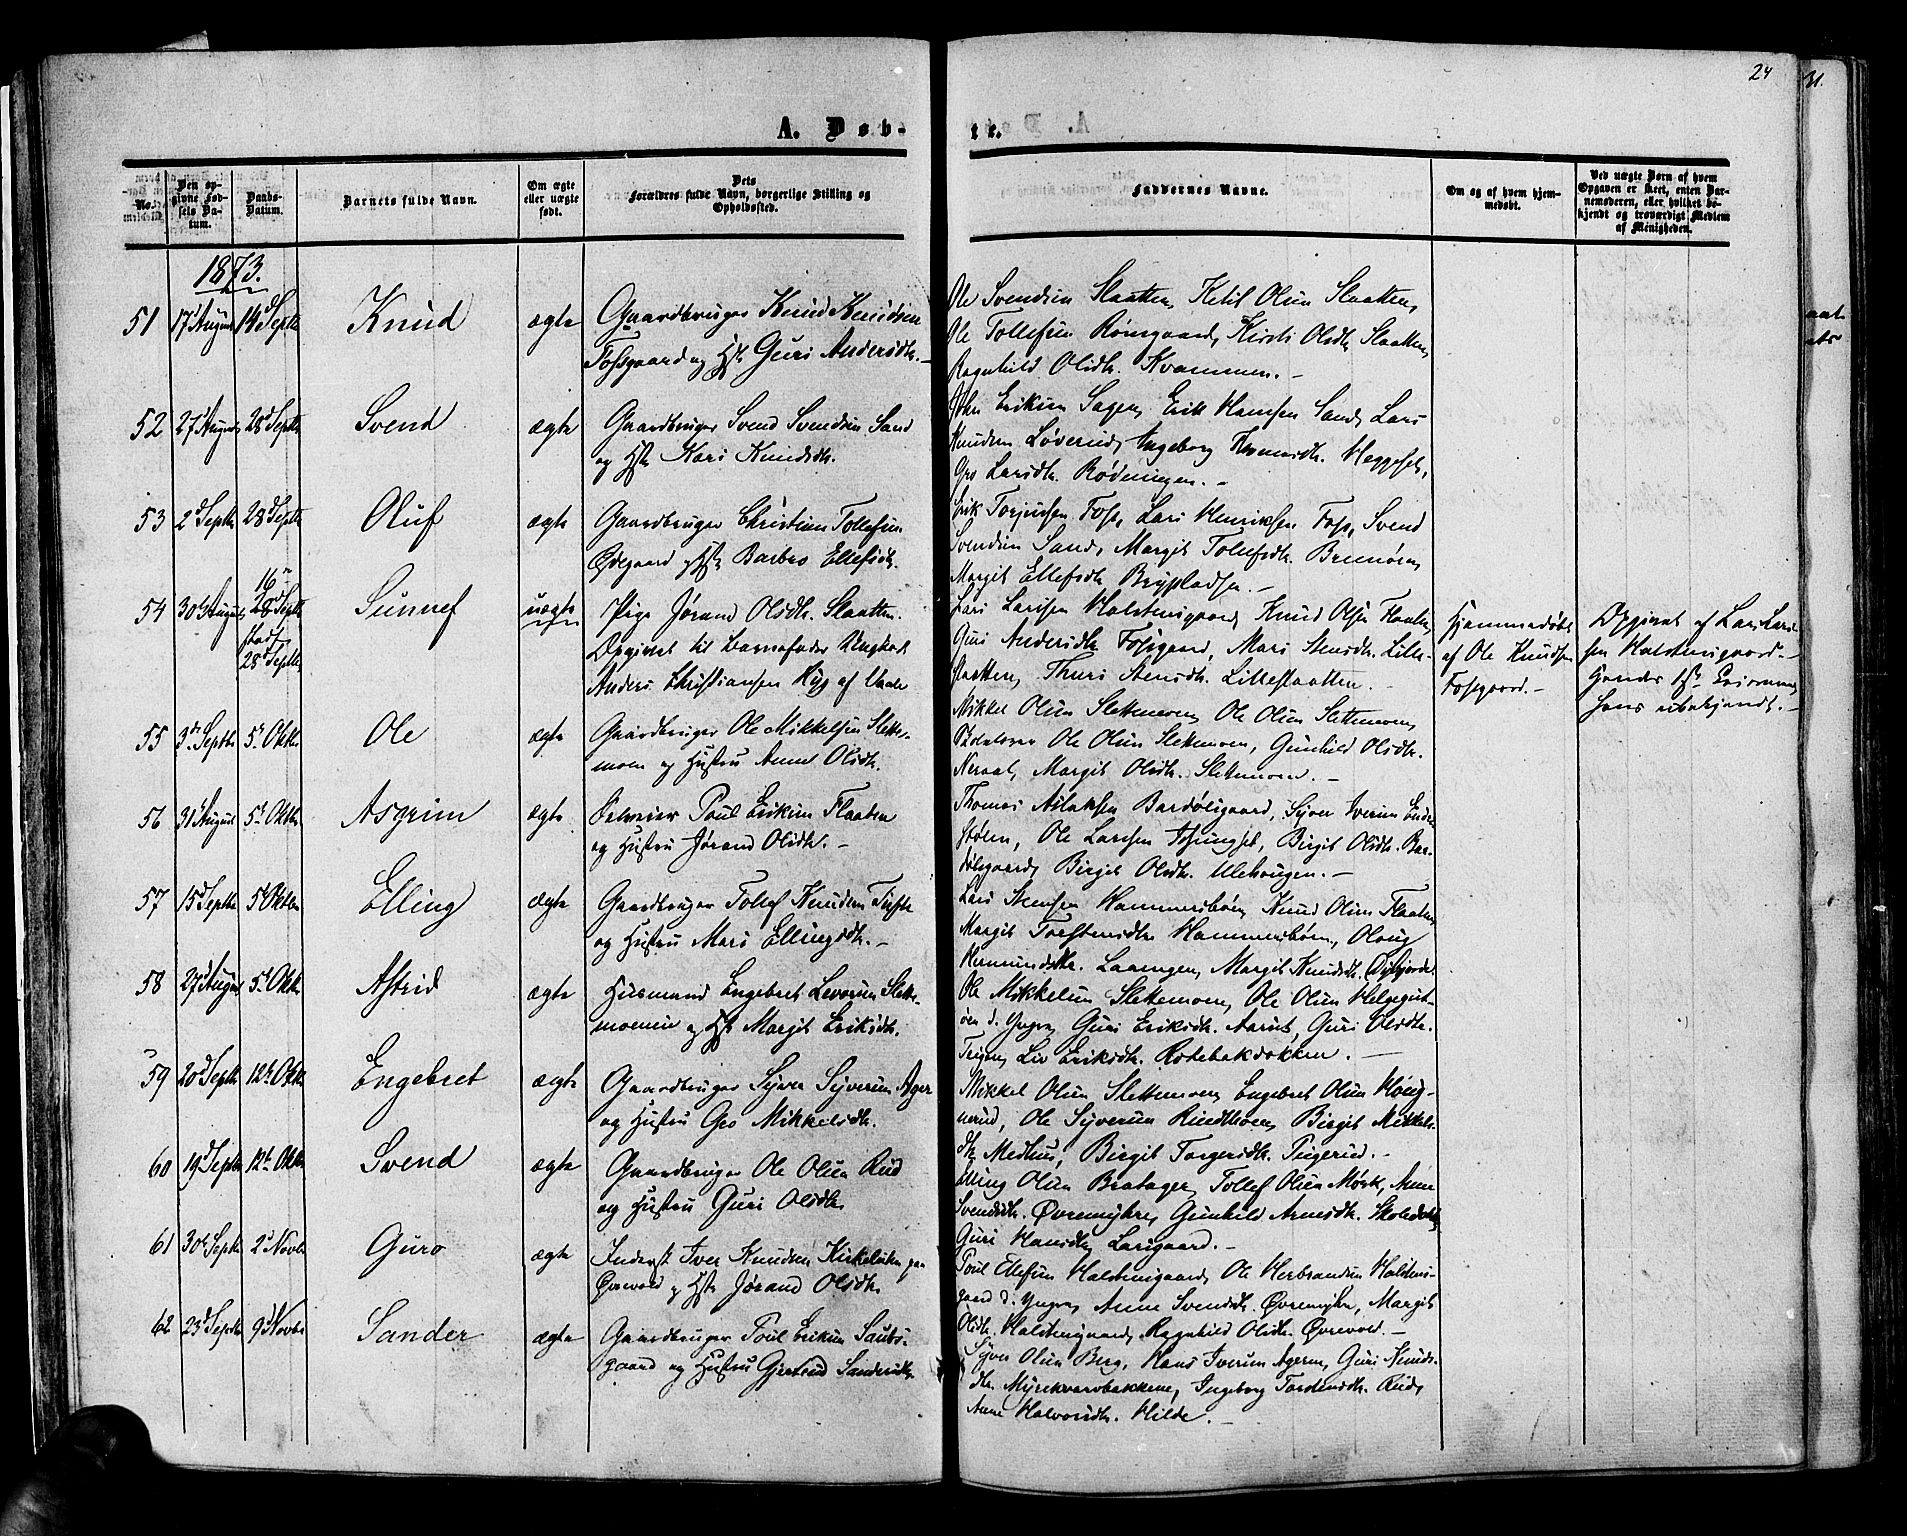 24
31.
A. Døb-
te.
No.
Den opgivne Fødsels Datum.
Daabs-Datum.
Barnets fulde Navn.
Om ægte eller uægte født.
Dets Forældres fulde Navn, borgerlige Stilling og Opholdssted.
Faddernes Navne.
Om og af hvem hjemmedøbt.
Ved uægte Børn af hvem Opgaven er skeet, enten Barnemoderen, eller hvilket bekjendt og troværdigt Medlem af Menigheden.
1873.
51 17 August 14 Septb Knud ægte Gaardbruger Knud Knudsen
Fossgaard og Hst Guri Andersdtr. -
Ole Svendsen Slaatten, Ketil Olsen Slaatten,
Ole Tollefsen Rønsgaard, Kirsti Olsdtr Slaatten,
Ragnhild Olsdtr. Kvammen. -
52 27 August 28 Septb Svend ægte Gaardbruger Svend Svendsen Sand
og Hst Kari Knudsdtr.
Eriksen Sagen, Erik Hansen Sand, Lars
Knudsen Løverud, Ingeborg Heggeset,
Gro Larsdtr. Rødningen. -
53 2 Septb 28 Septb Oluf ægte Gaardbruger Christian Tollefsen
Ødegaard og Hst Barbro Ellefsdtr.
Erik Torjusen Foss, Lars Henriksen Foss, Svend
Svendsen Sand, Margit Tollefsdtr. Brenno,
Margit Ellefsdtr Brypladsen. -
54 30 August 28 Septb Sunnef uægte Pige Jørand Olsdtr. Slaatten.
stadf. 28 Septb
Opgivet til Barnefader Ungkarl
Anders Christiansen af
Lars Larsen Halstensgaard, Knud Olsen Flaaten,
Guri Andersdtr Fossgaard, Mari Stensdtr. Lille-
slaatten, Thuri Stensdtr. Lilleslaatten. -
Hjemmedøbt
af Ole Knudsen
Fossgaard. -
Opgivet af Lars Lar-
sen Halstensgaard. -
ubekjendt. -
55 3 Septb 5 Oktbr Ole ægte Gaardbruger Ole Mikkelsen Slette-
moen og Hustru Anne Olsdtr.
Mikkel Olsen Slettemoen, Ole Olsen Slettemoen,
Ole Olsen Slettemoen, Gunhild Olsdtr.
Neraal, Margit Olsdtr. Slettemoen. -
56 31 August 5 Oktbr Asgrim ægte Selveier Poul Eriksen Flaaten
og Hustru Jørand Olsdtr. -
Thomas Aslaksen Bardølsgaard, Syver Iversen Ender-
stølen, Ole Larsen Birgit Olsdtr. Bar-
dølsgaard, Birgit Olsdtr. Ulehougen. -
57 15 Septb 5 Oktbr Elling ægte Gaardbruger Tollef Knudsen Tufte
og Hustru Mari Ellingsdtr. -
Lars Stensen Hammersbøen, Knud Olsen Flaaten,
Margit Torstensdtr Hammersbøen, Oloug
Hermundsdtr. Laaingen, Margit Knudsdtr.
58 27 August 5 Oktbr Astrid ægte Husmand Engebret Levorsen Slette-
moeneie og Hst Margit Eriksdtr.
Ole Mikkelsen Slettemoen, Ole Olsen Helgeset-
øen d. Yngre, Guri Eriksdtr. Aarset, Guri Olsdtr.
Teigen, Liv Eriksdtr. Rotebakdokken. -
59 20 Septb 12 Oktbr Engebret ægte Gaardbruger Syver Syversen Ager
og Hustru Gro Mikkelsdtr.
Mikkel Olsen Slettemoen, Engebret Olsen Houg-
nerud, Ole Syversen Rindmoen, Birgit Mikkels-
dtr. Medhus, Birgit Torgersdtr. Tingerud. -
60 19 Septb 12 Oktbr Svend ægte Gaardbruger Ole Olsen Rud
og Hustru Guri Olsdtr
Elling Olsen Bratager, Tollef Olsen Mørk, Anne
Svendsdtr. Øvremyhre, Gunhild Arnesdtr.
Guri Hansdtr Larsgaard. -
61 30 Septb 2 Novbr Guro ægte Inderst Iver Knudsen paa
Øvrevold og Hst Jørand Olsdtr.
Poul Ellefsen Halstensgaard, Ole Herbrandsen Halstens-
gaard d. Yngre, Anne Svendsdtr. Øvremyhre, Margit
Olsdtr. Halstensgaard, Ragnhild Olsdtr. Øvrevold. -
62 23 Septb 9 Novbr Sander ægte Gaardbruger Poul Eriksen Sauts-
gaard og Hustru Gjertrud Sandersdtr.
Syver Olsen Berg, Hans Iversen Ageren, Guri Knuds-
dtr. Myrekvernbakkene, Ingeborg Torstensdtr. Rud,
Anne Halvorsdtr. Hilde. -